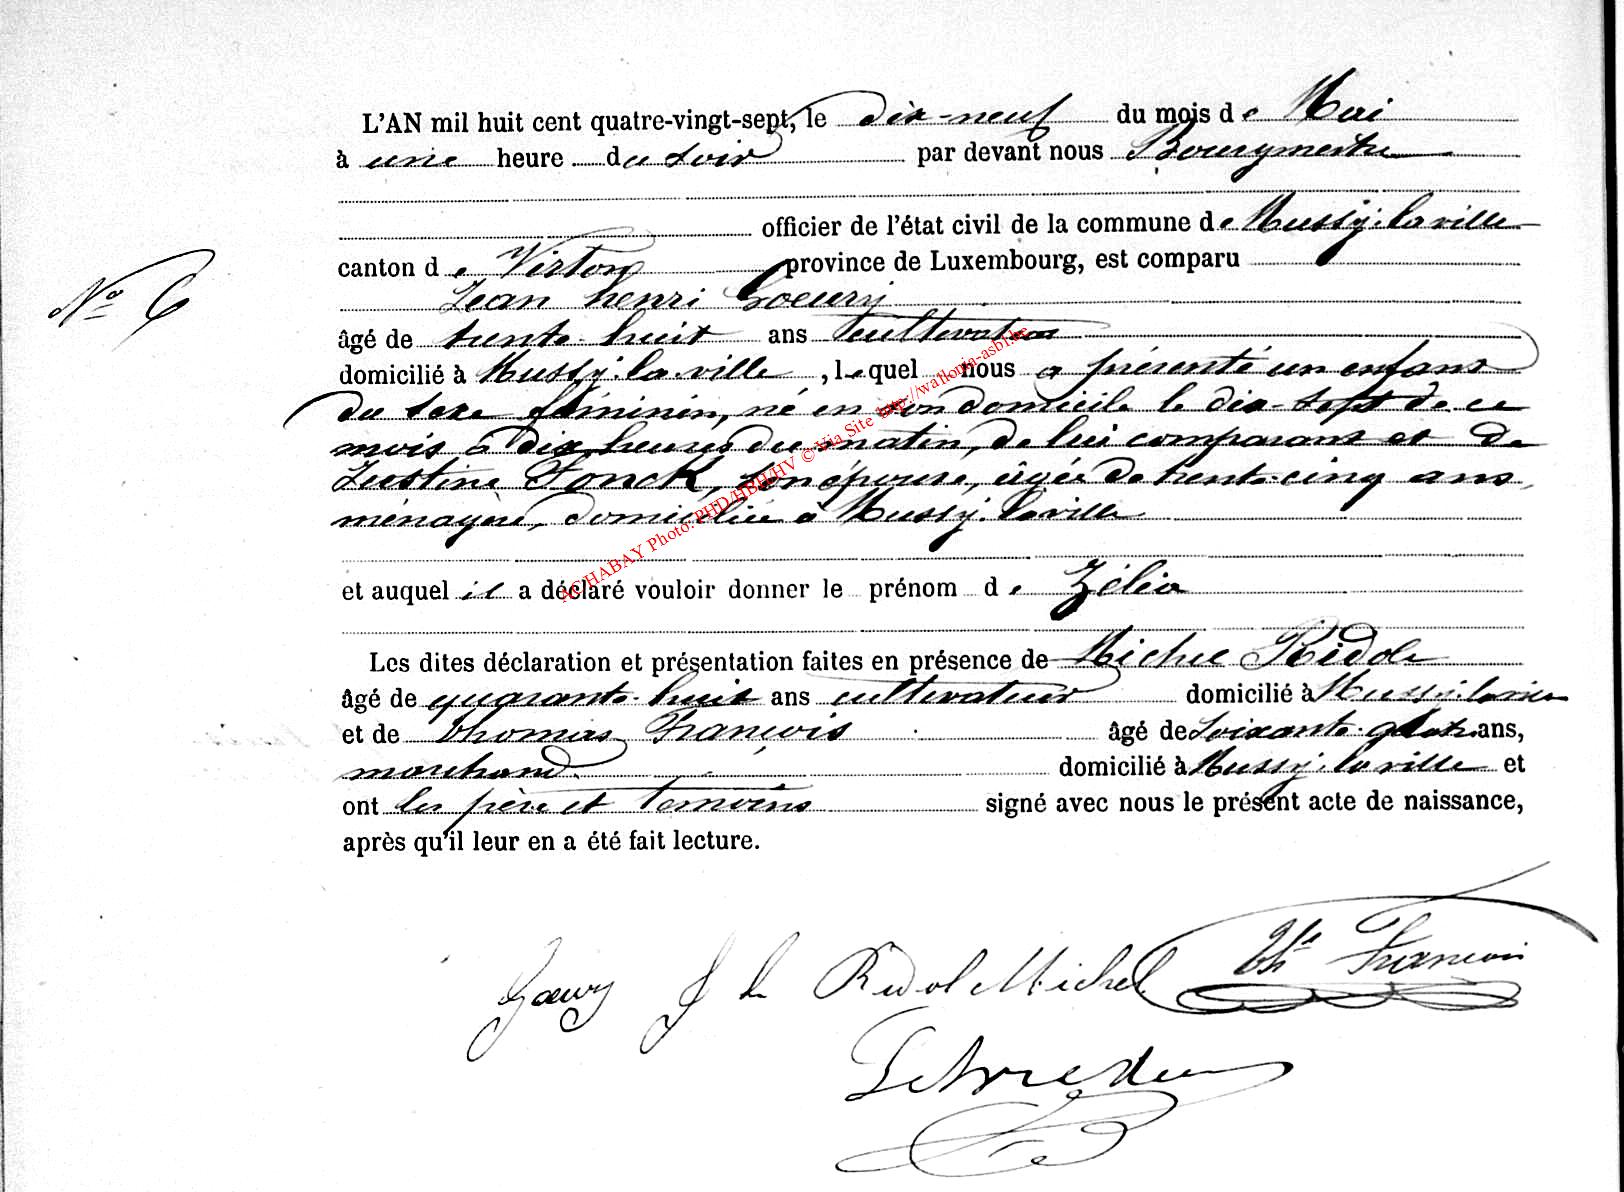 L'AN mil huit cent quatre-vingt-sept, le dix-neuf du mois de Mai
à une heure du soir par devant nous Bourgmestre
officier de l'état civil de la commune de Mussy-la-ville
canton de Virton province de Luxembourg, est comparu
Jean henri Goeury
âgé de trente-huit ans cultivateur
N° 6
domicilié à Mussy-la-ville, lequel nous a présenté un enfant
du sexe féminin, né en son domicile le dix-sept de ce
mois à dix heures du matin, de lui comparant et de
Justine Fonck, son épouse, âgée de trente-cinq ans,
ménagère, domiciliée à Mussy-la-ville
et auquel il a déclaré vouloir donner le prénom de Zélia
Les dites déclaration et présentation faites en présence de Michel Ridole
âgé de quarante-huit ans cultivateur domicilié à Mussy-la-ville
et de thomas François âgé de soixante-quatre ans,
marchand domicilié à Mussy-la-ville et
ont les père et témoins signé avec nous le présent acte de naissance,
après qu'il leur en a été fait lecture.
Goeury J h Ridol Michel Th François
ACHABAY Photo: PHD/HBH/HV © Via Site http://wallonia-asbl.be